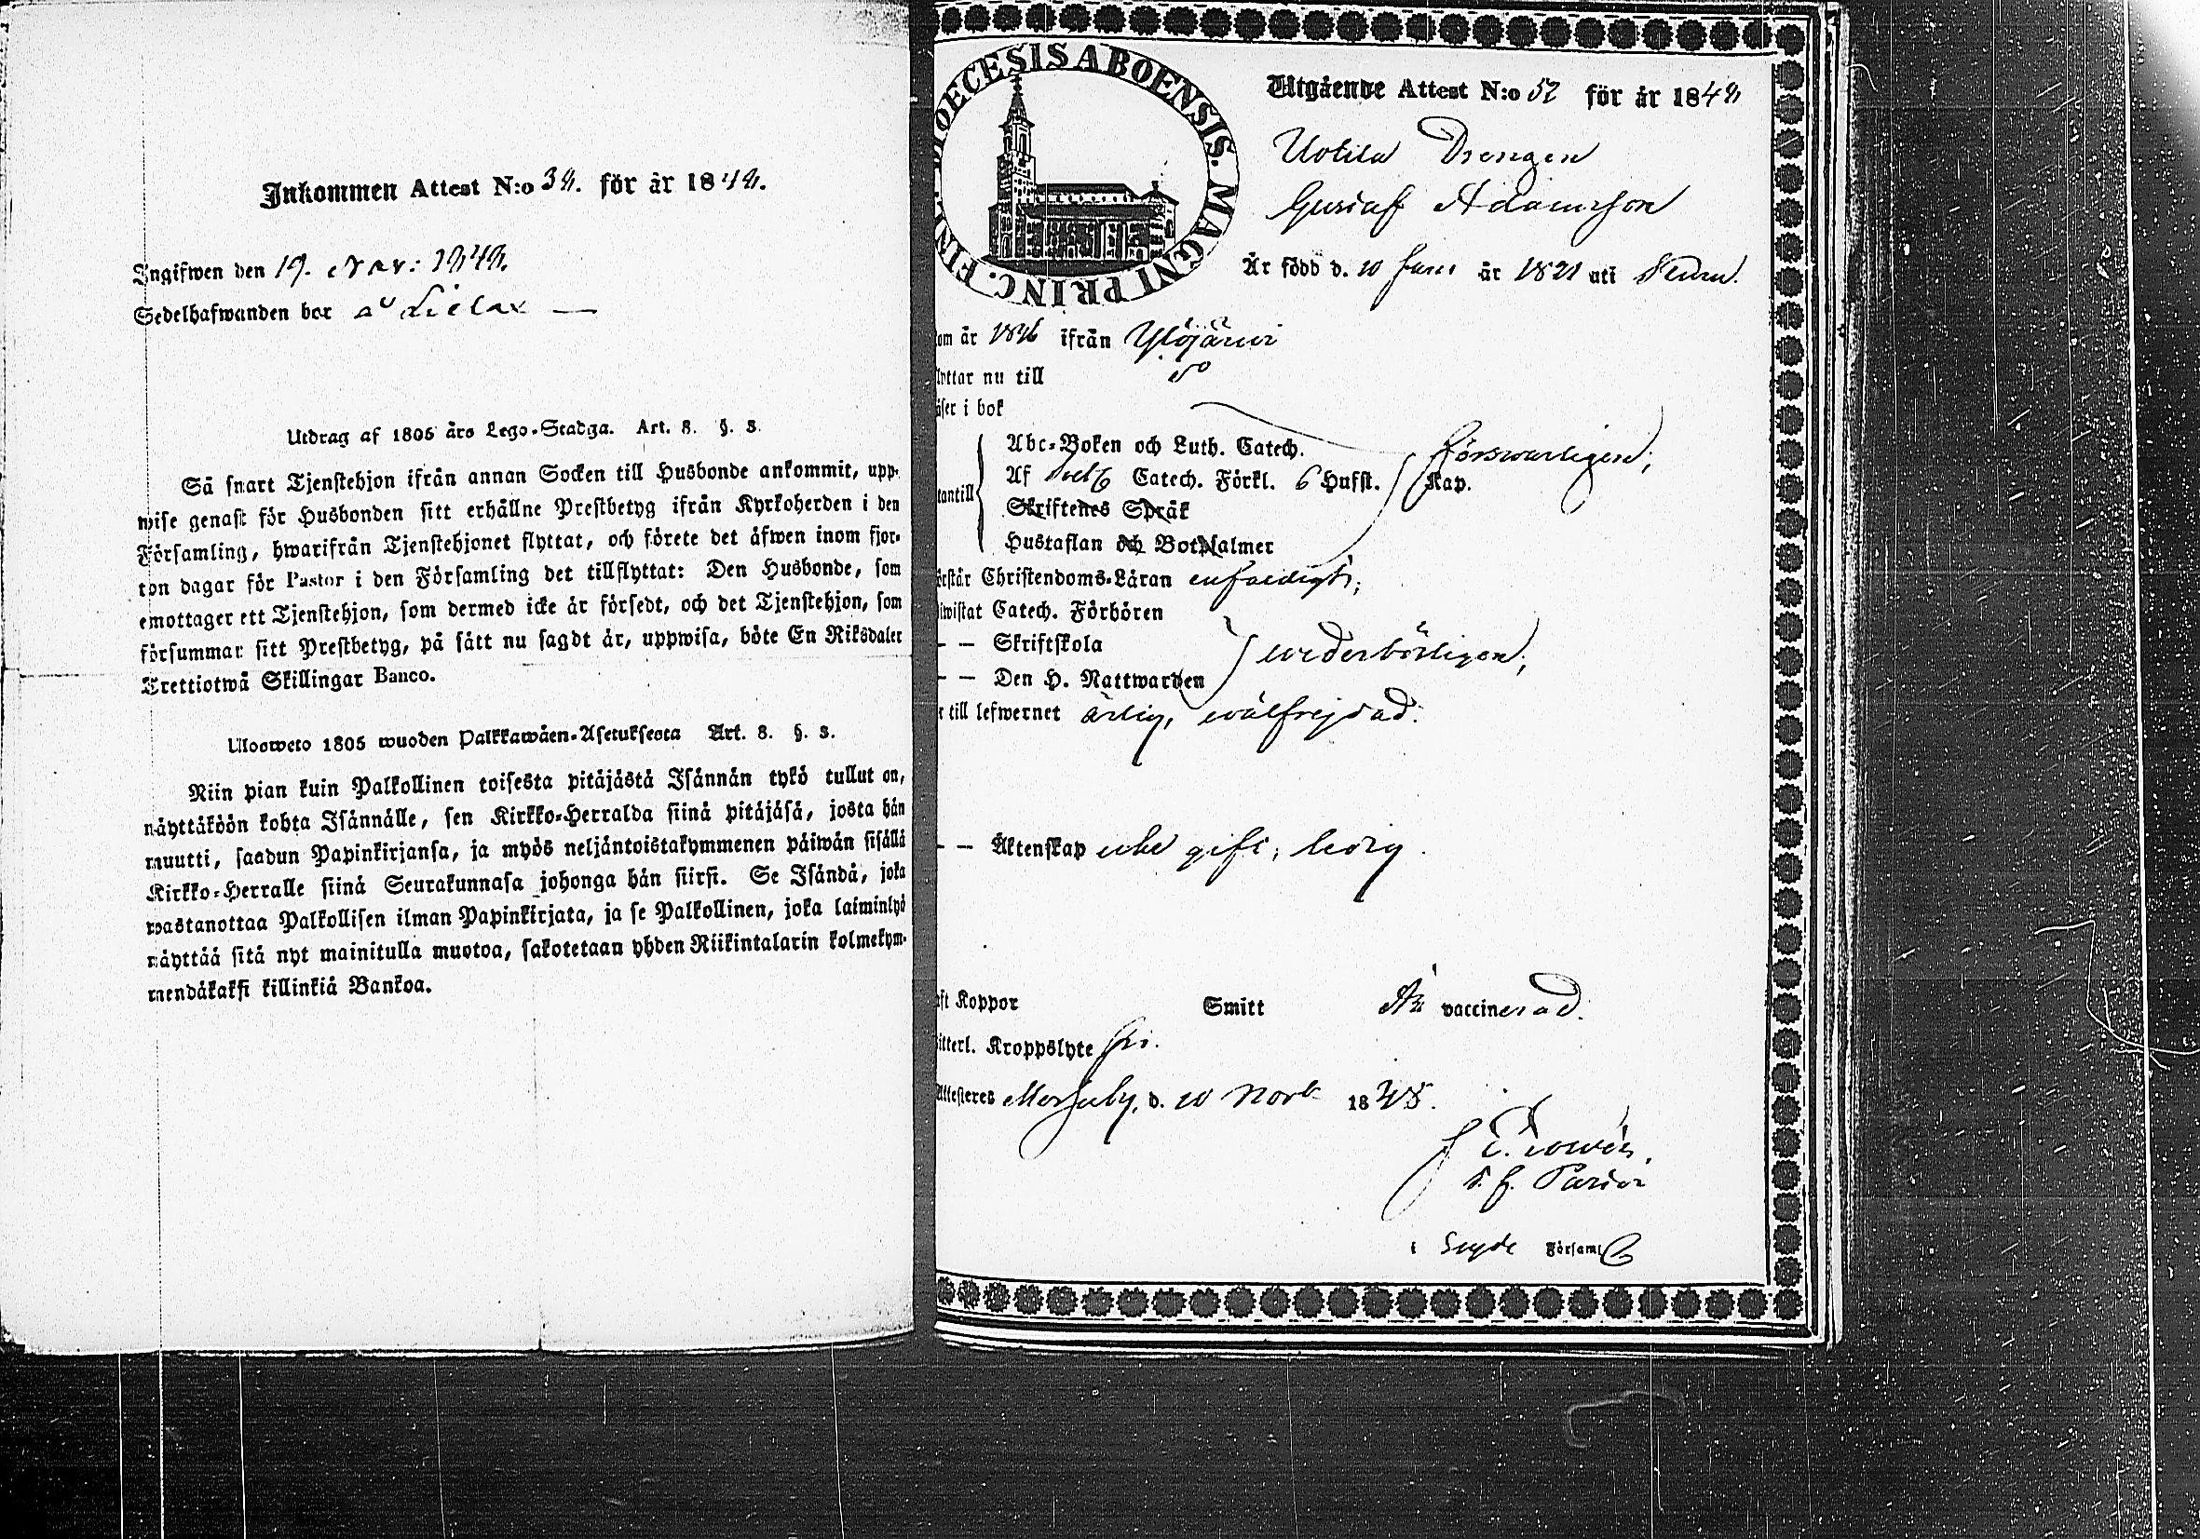 Inkommen Attest N:o 34. för år 1848.
Ingifwen den 19. Nov: 1848.
Sedelhafwanden bor å Lielax —
Utdrag af 1805 års Lego-Stadga. Art. 8. §. 3.
Så snart Tjenstehjon ifrån annan Socken till Husbonde ankommit, upp-
wise genast för Husbonden sitt erhållne Prestbetyg ifrån Kyrkoherden i den
Församling, hwarifrån Tjenstehjonet flyttat, och förete det äfwen inom fjor-
ton dagar för Pastor i den Församling det tillflyttat: Den Husbonde, som
emottager ett Tjenstehjon, som dermed icke är försedt, och det Tjenstehjon, som
försummar sitt Prestbetyg, på sätt nu sagdt är, uppwisa, böte En Riksdaler
Trettiotwå Skillingar Banco.
Ulosweto 1805 wuoden Palkkawäen-Asetuksesta Art. 8. §. 3.
Niin pian kuin Palkollinen toisesta pitäjästä Isännän tykö tullut on,
näyttäköön kohta Isännälle, sen Kirkko-Herralda siinä pitäjäsä, josta hän
muutti, saadun Papinkirjansa, ja myös neljäntoistakymmenen päiwän sisällä
Kirkko-Herralle siinä Seurakunnasa johonga hän siirsi. Se Isändä, joka
wastanottaa Palkollisen ilman Papinkirjata, ja se Palkollinen, joka laiminlyö
näyttää sitä nyt mainitulla muotoa, sakotetaan yhden Riikintalarin kolmekym-
mendäkaksi killinkiä Bankoa.
DIOECESIS ABOENSIS. MAGNI PRINC. FINL.
Utgående Attest N:o 52 för år 1848
Uotila Drengen
Gustaf Adamsson
Är född d. 10 Juni år 1821 uti
om år 1846 ifrån Ylöjärwi
lyttar nu till
äser i bok
Abc-Boken och Luth. Catech. försvarligen;
Af Catech. Förkl. 6 Hufst. Kap.
tantill
Skriftenes Språk
Hustaflan och Botpsalmer
örstår Christendoms-Läran enfaldigt;
iwistat Catech. Förhören
— — Skriftskola wederbörligen;
— — Den H. Nattwarden
r till lefwernet ärlig, wälfrejdad.
— — Äktenskap icke gift; ledig.
aft Koppor Smitt Är vaccinerad.
itterl. Kroppslyte fri.
Attesteres d. 10 Novb 1848.
v. Pastor
i Församl